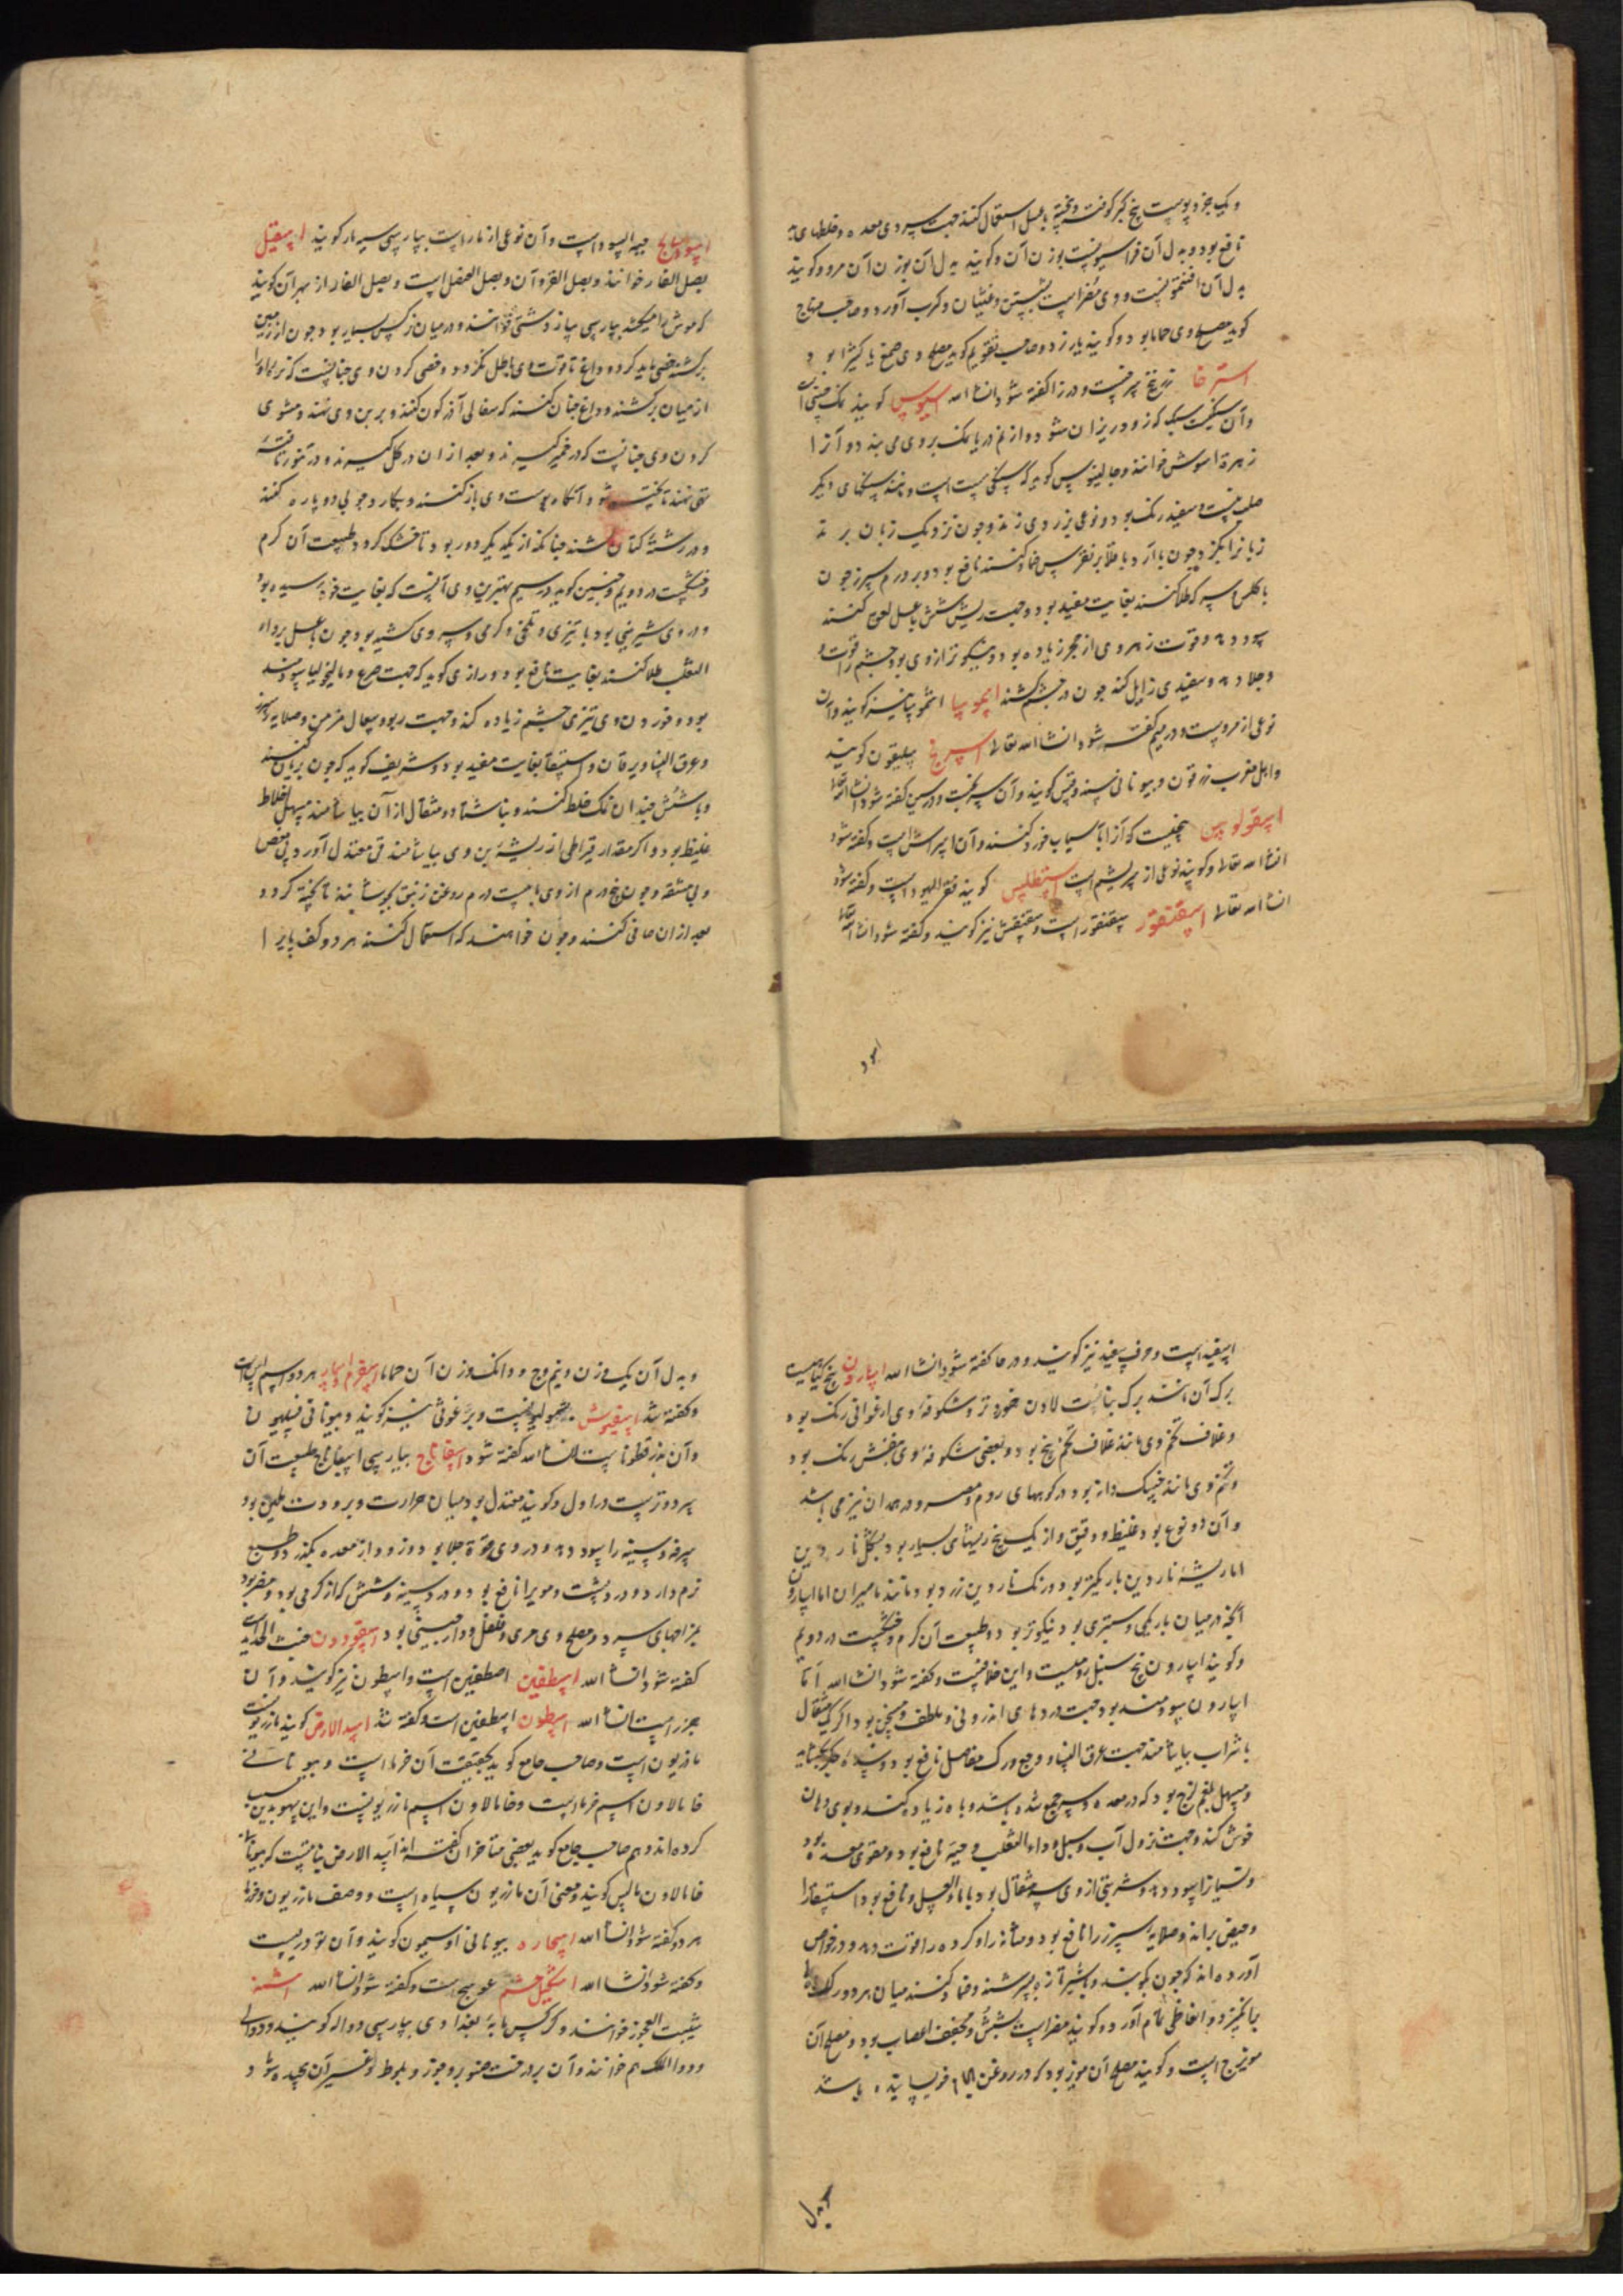 و یک جزو پوست بیخ کبر کوفته و بیخته با عسل استعمال کنند جهت سپردی معده و خلطهای
نافع بود و بدل آن فراسیونست بوزن آن و کویند بدل آن بوزن آن مرو و کویند
بدل آن افتیمونست و وی مضر است بشش و غثیان و کرب آورد و صاحب منهاج
کوید مصلح وی حماما بود و کویند یارزد و صاحب تقویم کوید مصلح وی صمغ یا کثیرا بود
استرخا زرنیخ سرخست و در زا کفته شود انشا الله اسیوس کویند نمک چینی است
و آن سنکیست سبک که زود ریزان شود و از نم دریا نمک بر وی می بندد و آنرا
زهرة اسوس خوانند و جالینوس کوید که سنکی سست است و مانند سنکهای دیکر
صلب نیست و سفید رنک بود و نوعی بزردی زند و چون نزدیک زبان برند
زبانرا بکزد و چون با آرد باقلا بر نقرس ضماد کنند نافع بود و بر ورم سپرز چون
با کلس سرکه طلا کنند بغایت مفید بود و جهت ریش شش با عسل لعوق کنند
سود دهد و قوت زهره وی از حجر زیاده بود و نیکوتر از وی بود چشم را قوت
و جلا دهد و سفیدی زایل کند چون در چشم کشند اسموسا اسموسا نیز کویند و آن
نوعی از مروست و در میم کفته شود انشا الله تعالی اسرنج سلیقون کویند
و اهل مغرب زرقون و بیونانی سندوقس کویند و آن سرنجست و در سین کفته شود انشا الله تعالی
اسقولوس بیخیست که آنرا بآسیاب خورد کنند و آن اسراش است و کفته شود
انشا الله تعالی و کویند نوعی از سریشم است اسفلطس کویند قفر الیهود است و کفته شود
انشا الله تعالی اسقنقور سقنقور است و سقنقس نیز کویند و کفته شود انشا الله تعالی
اسود
اسود سالخ حیه السودا است و آن نوعی از مار است بپارسی سیه مار کویند اسقیل
بصل الفار خوانند و بصل القرد آن و بصل العنصل است و بصل الفار از بهر آن کویند
که موش را میکشد بپارسی پیاز دشتی خوانند و در میان نرکس بسیار بود چون از زمین
برکشند خصی باید کرد و داغ تا قوت وی باطل نکردد و خصی کردن وی چنانست که نر و ماده را
از میان برکشند و داغ چنان کنند که سفالی آذرکون کنند و بر بن وی نهند و مشوی
کردن وی چنانست که در خمیر کیرند و بعد از ان در کل کیرند و در تنور تافته
تهی نهند تا پخته شود آنکاه پوست وی باز کنند و بکارد چوبی دو پاره کنند
و در رشتهٔ کتان کشند چنانکه از یکدیکر دور بود تا خشک کردد طبیعت آن کرم
و خشکست در دویم و حبیش کوید در سیم بهترین وی آنست که بغایت خود رسیده بود
و در وی شیرینی بود با تیزی و تلخی و کرمی و سردی کشیده بود چون با عسل بر داء
الثعلب طلا کنند بغایت نافع بود و رازی کوید که جهت صرع و مالیخولیا سودمند
بود و خوردن وی تیزی چشم زیاده کند و جهت ربو و سعال مزمن و صلابه سپرز
و عرق النسا و یرقان و استسقا بغایت مفید بود و شریف کوید که چون بریان کنند
و با شش چندان نمک خلط کنند و بناشتا دو مثقال از آن بیاشامند مسهل اخلاط
غلیظ بود و اکر مقدار قیراطی از ریشه بن وی بیاشامند قی معتدل آورد بی مغص
و بی مشقه و چون پنج درم از وی با بیست درم روغن زنبق بجوشانند تا پخته کردد
بعد از ان صافی کنند و چون خواهند که استعمال کنند هر دو کف پای را
اسفیه است و حرف سفید نیز کویند و در حا کفته شود انشا الله اسارون بیخ کیاهیست
برک آن مانند برک نبات لادن خوردتر و شکوفهٔ وی ارغوانی رنک بود
و غلاف تخم وی مانند غلاف تخم بنج بود و بعضی شکوفهٔ وی بنفش رنک بود
و تخم وی مانند خسک دانه بود و در کوههای روم و مصر و در همدان نیز می باشد
و آن دو نوع بود غلیظ و دقیق و از یک بیخ ریشهای بسیار بود بشکل ناردین
اما ریشهٔ ناردین باریکتر بود و رنک ناردین زرد بود مانند مامیران اما اسارون
آنچه در میان باریکی و ستبری بود نیکوتر بود و طبیعت آن کرم و خشکست در دویم
و کویند اسارون بیخ سنبل رومیست و این خلافست و کفته شود انشا الله اما
اسارون سودمند بود جهت دردهای اندرونی و ملطف و مسخن بود اکر یک مثقال
با شراب بیاشامند جهت عرق النسا و وجع ورک و مفاصل نافع بود و سدهٔ جکر بکشاید
و مسهل بلغم لزج بود که در معده و سر جمع شده باشد و باه زیاده کند و بوی دهان
خوش کند و جهت نزول آب و سبل و داء الثعلب و حیه نافع بود و مقوی معده بود
و نسیانرا سود دهد و شربتی از وی سه مثقال بود با ماء العسل و نافع بود استسقا را
و حیض براند و صلابه سپرز را نافع بود و مثانه را و کرده را قوت دهد و در خواص
آورده اند که چون بکوبند و با شیر تازه بسرشند و ضماد کنند میان هر دو رک باه
بیانکیزد و انعاظی تام آورد و کویند مضر است بشش و مجفف اعصاب بود و مصلح آن
مویزج است و کویند مصلح آن مویز بود که در روغن بادام خیسانیده باشند
بدل
و بدل آن یک وزن و نیم وج و دانک وزن آن حماما اسقرم و اسپار هر دو اسم آس است
و کفته شد اسفیوش اسفیولوسست و برغوثی نیز کویند و بیونانی فسلیون
و آن بذر قطوناست انشا الله کفته شود اسفاناج بپارسی اسپناج طبیعت آن
سرد و ترست در اول و کویند معتدل بود میان حرارت و برودت ملین بود
سرفه و سینه را سود دهد و در وی قوة جلا بود و زود از معده بکذرد و طبع
نرم دارد و درد پشت و موی را نافع بود و درد سینه و شش که از کرمی بود و مضر بود
بمزاجهای سرد و مصلح وی مری و فلفل و دارچینی بود اسقورون خبث الحدید است
کفته شود انشا الله اسطفین اصطفین است و اسطون نیز کویند و آن
جزر است انشا الله اسطون اسطفین است و کفته شد اسد الارض کویند مازریونست
مازریون است و صاحب جامع کوید بحقیقت آن حرباء است و بیونانی
خامالاون اسم حرباءست و خامالاون اسم مازریونست و این سهو بدین سبب
کرده اند و هم صاحب جامع کوید بعضی متاخران کفته اند اسد الارض نباتیست که بیونانی
خامالاون مالس کویند و معنی آن مازریون سیاه است و وصف مازریون و حربا
هر دو کفته شود انشا الله اسحاره بیونانی اوسیمون کویند و آن تودریست
و کفته شود انشا الله اسخیل خشم عوسج است و کفته شود انشا الله اشنه
شیبت العجوز خوانند و کرکس مایه بغدادی بپارسی دواله کویند و دوالی
و دواالک هم خوانند و آن بر درخت صنوبر و جوز و بلوط و غیر آن پیچیده شود